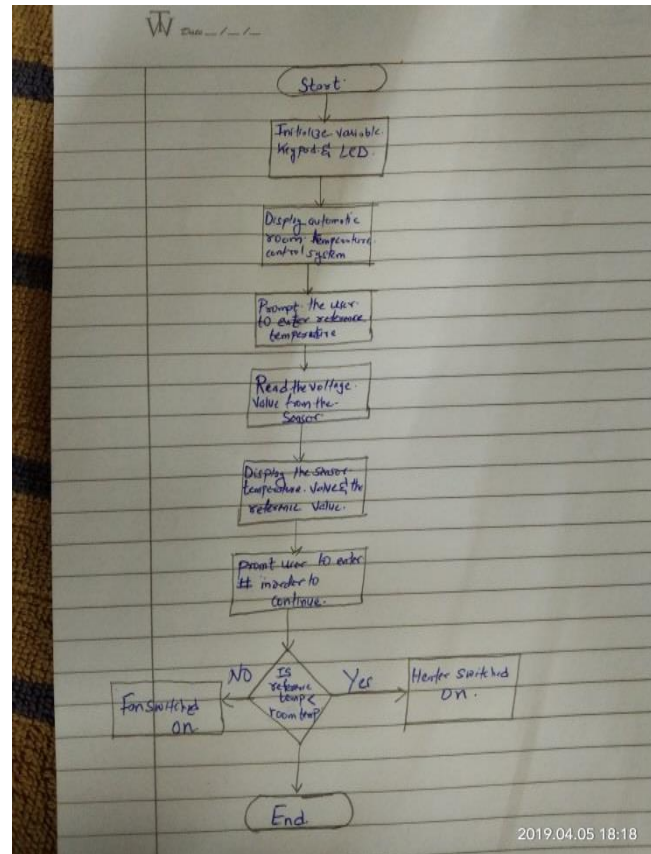 TW Date __/__/__
Start.
Initialize variable
Keypad & LCD.
Display automatic
room temperature
control system
Prompt the user
to enter reference
temperature
Read the voltage
value from the
Sensor
Display the sensor
temperature value & the
referenc value.
promt user to enter
# inorder to
continue.
NO
Is
referenc
temp <
room temp
Yes
Heater switched
on.
Fan switched
on.
End.
2019.04.05 18:18